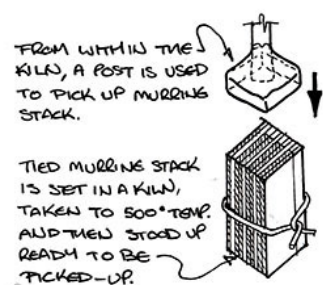 FROM WITHIN THE
KILN, A POST IS USED
TO PICK UP MURRINE
STACK.
TIED MURRINE STACK
IS SET IN A KILN,
TAKEN TO 500° TEMP.
AND THEN STOOD UP
READY TO BE
PICKED-UP.